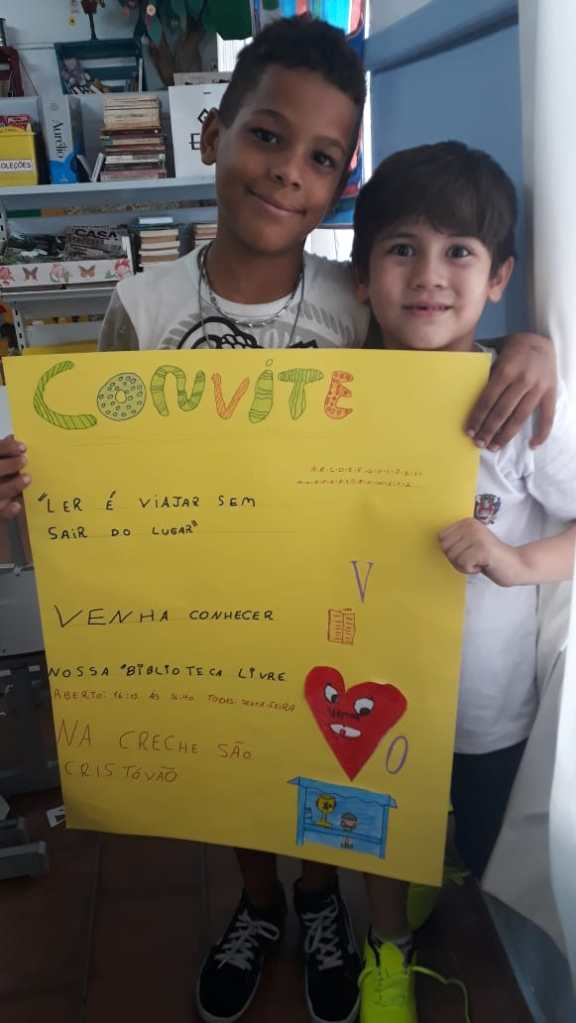 COLEÇÕES
Aurélio
CASA
CONVITE
"LER É VIAJAR SEM
SAIR DO LUGAR"
V
VENHA CONHECER
NOSSA "BIBLIOTECA LIVRE
ABERTO: ÀS TODAS SEXTA-FEIRA
NA CRECHE SÃO
CRISTÓVÃO
O